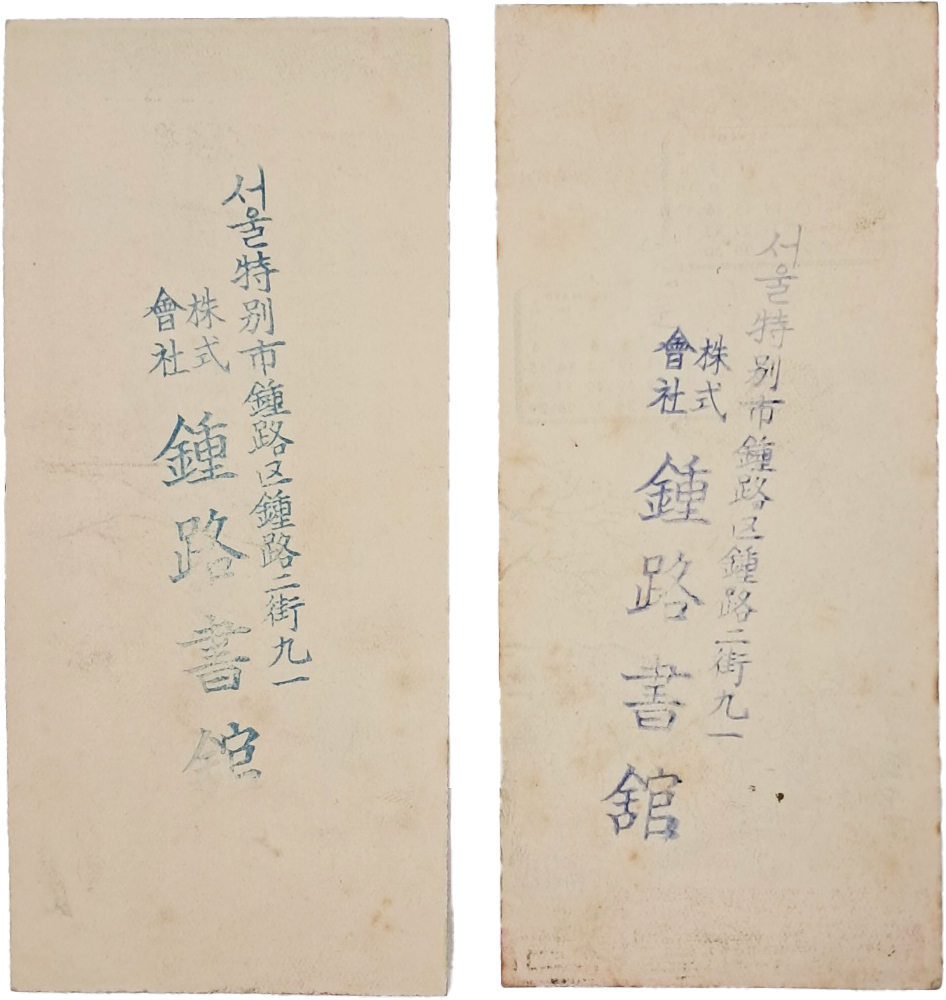 서울特別市鍾路区鍾路二街九一
株式
會社
鍾路書舘
서울特別市鍾路区鍾路二街九一
株式
會社
鍾路書舘